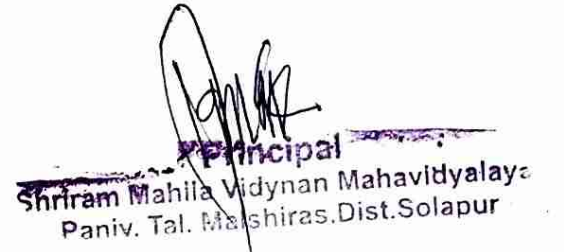 Principal
Shriram Mahila Vidynan Mahavidyalaya
Paniv. Tal. Malshiras.Dist.Solapur